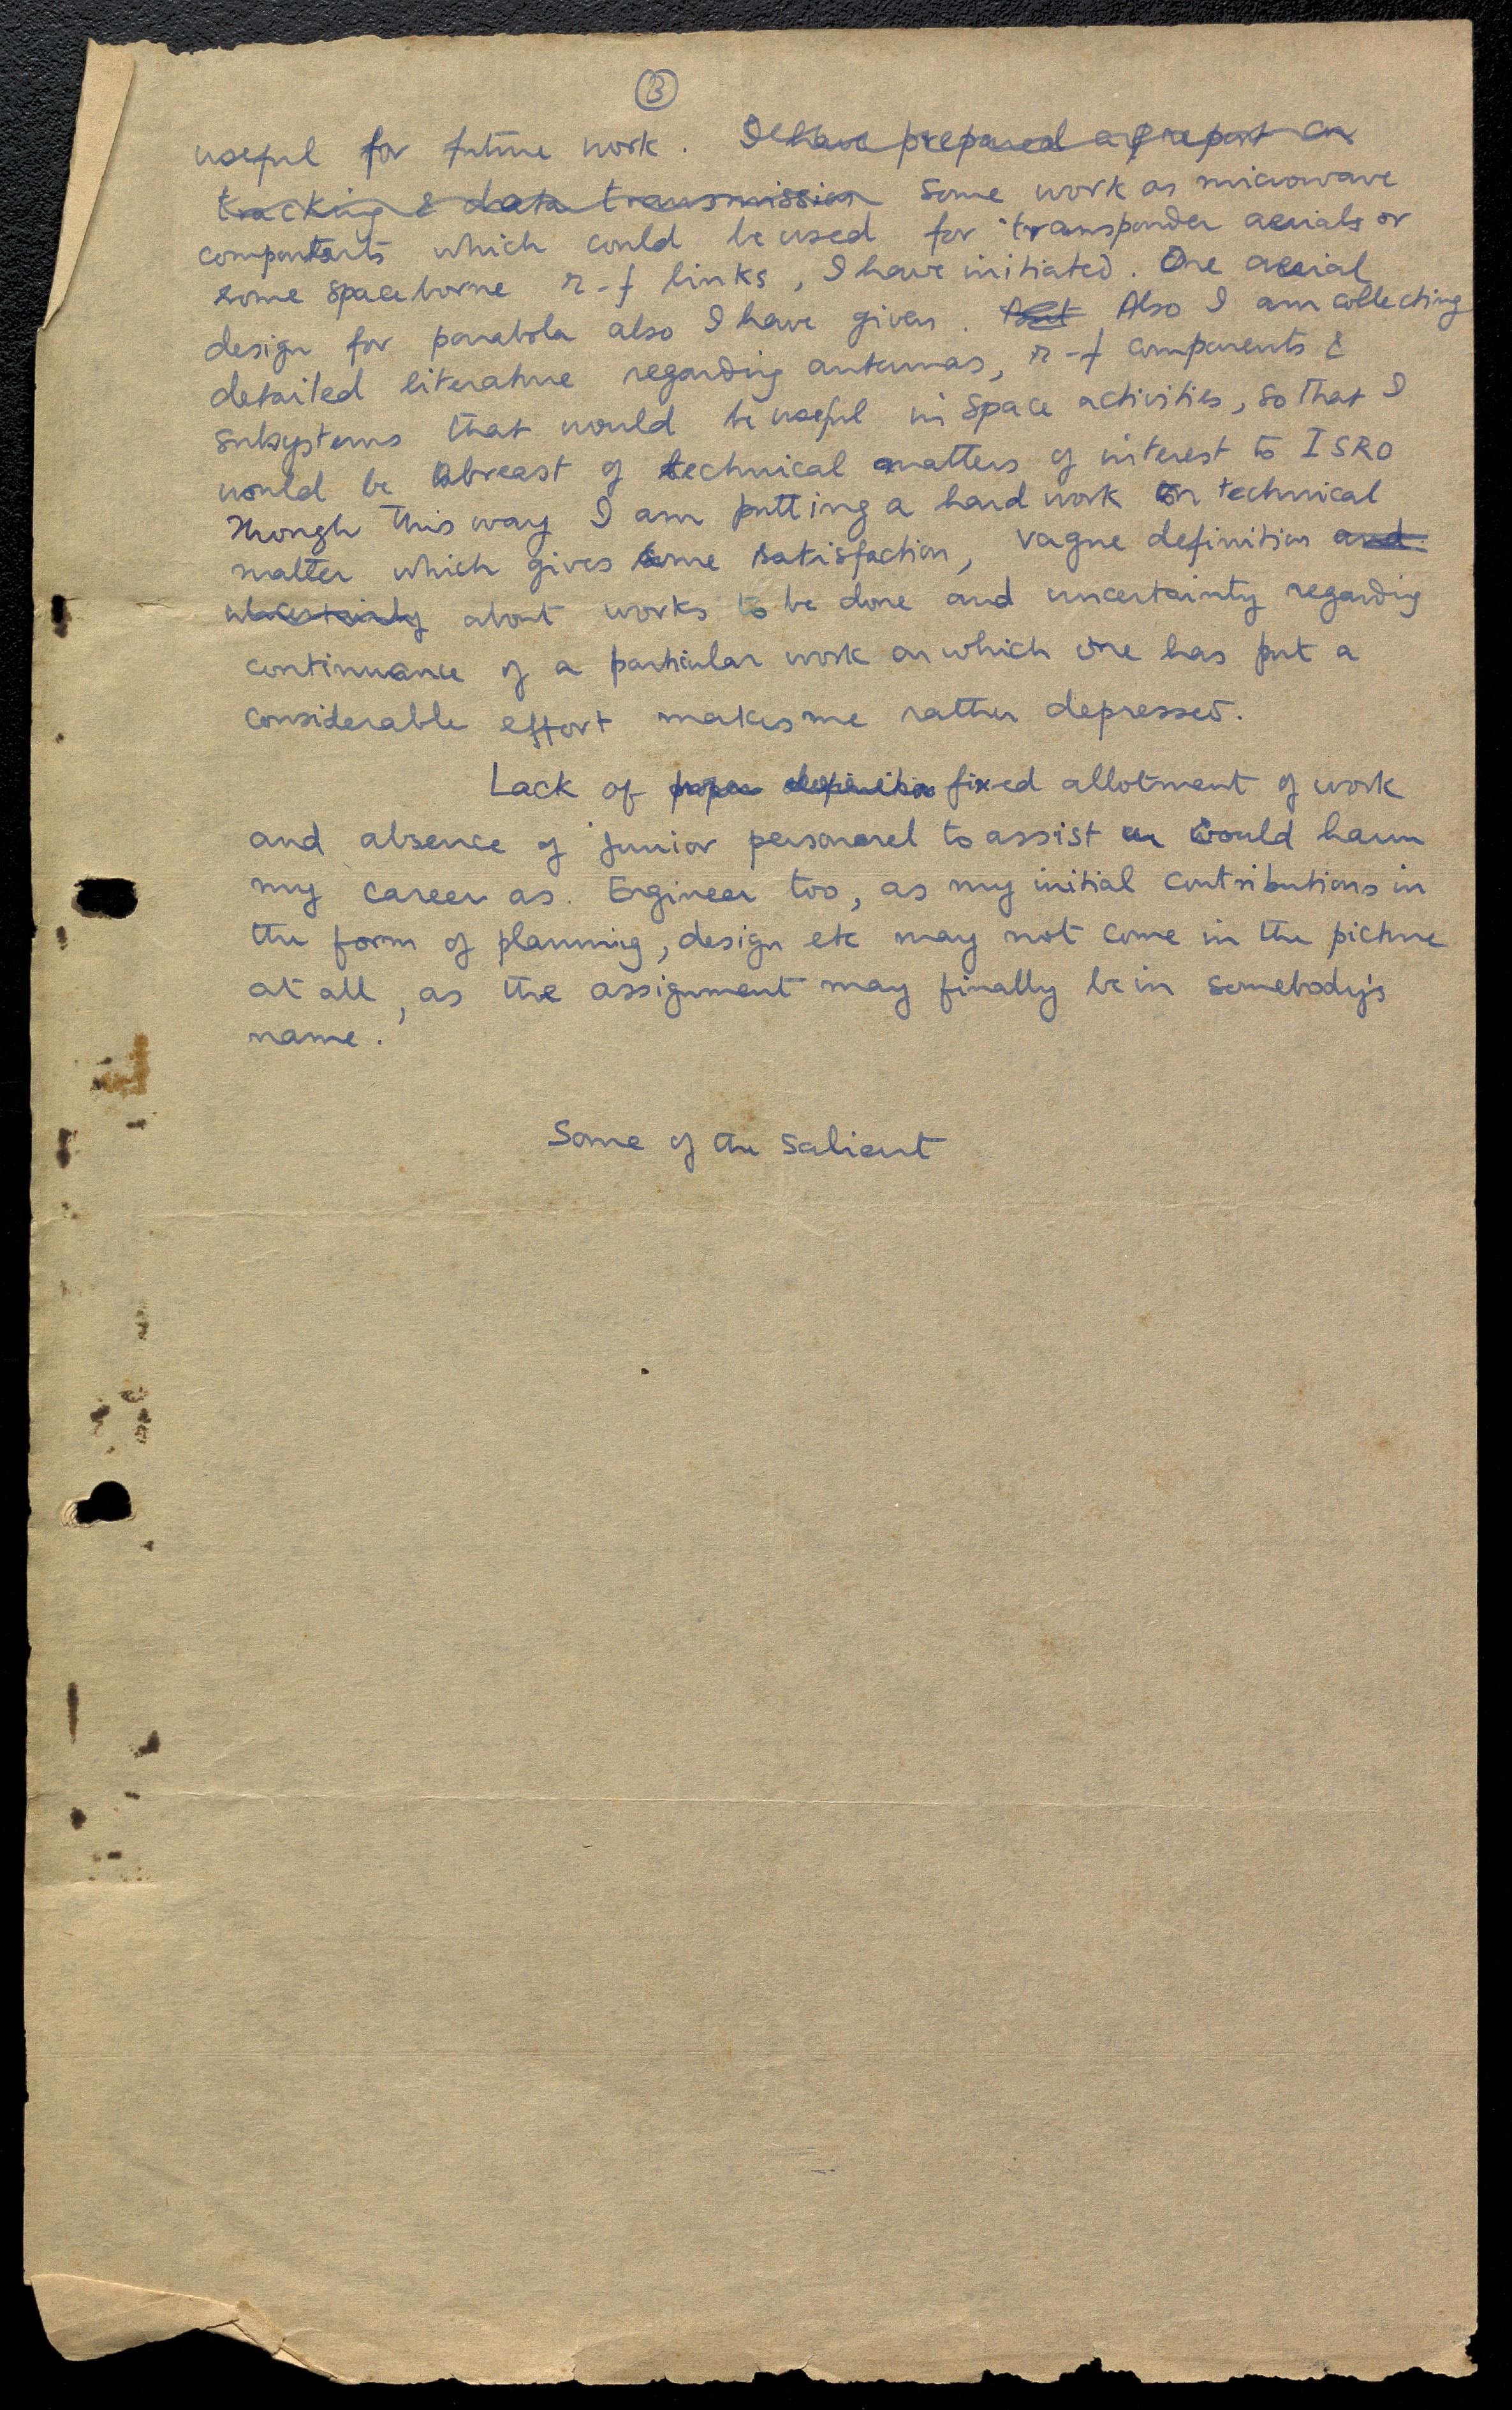 3
useful for future work. I have prepared a report on
tracking & data transmission some work on microwave
components which could be used for transponder aerials or
some space borne r-f links, I have initiated. One aerial
design for parabola also I have given. But Also I am collecting
detailed literature regarding antennas, r-f components &
subsystems that would be useful in space activities, so that I
would be abreast of technical matters of interest to ISRO
Though this way I am putting a hard work on technical
matter which gives some satisfaction, vague definition and
uncertainty about works to be done and uncertainty regarding
continuance of a particular work on which one has put a
considerable effort makes me rather depressed.
Lack of proper definition fixed allotment of work
and absence of junior personnel to assist would harm
my career as. Engineer too, as my initial contributions in
the form of planning, design etc may not come in the picture
at all, as the assignment may finally be in somebody's
name.
Some of the salient